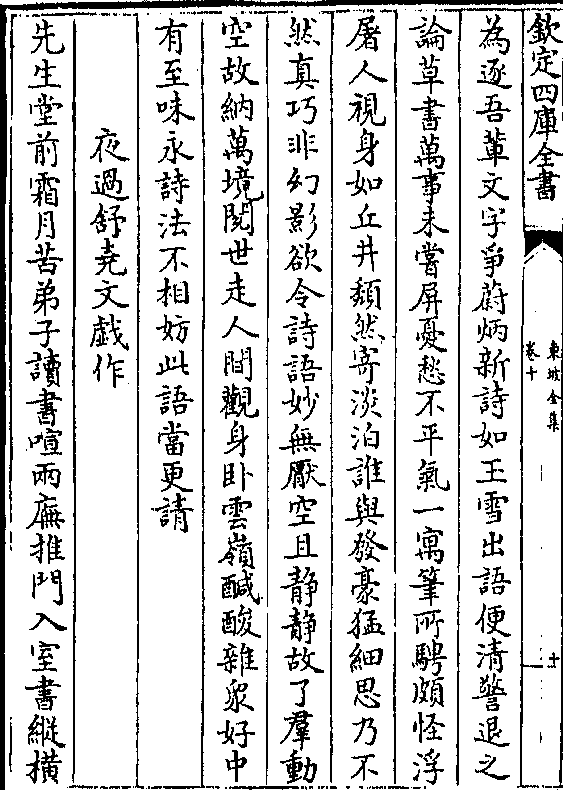 欽定四庫全書
東坡全集
卷十
十
為逐吾輩文字爭蔚炳新詩如玉雪出語便清警退之
論草書萬事未嘗屏憂愁不平氣一寓筆所騁頗怪浮
屠人視身如丘井頽然寄淡泊誰與發豪猛細思乃不
然真巧非幻影欲令詩語妙無厭空且静静故了羣動
空故納萬境閱世走人間觀身卧雲嶺鹹酸雜衆好中
有至味永詩法不相妨此語當更請
夜過舒堯文戯作
先生堂前霜月苦弟子讀書喧兩廡推門入室書縱横